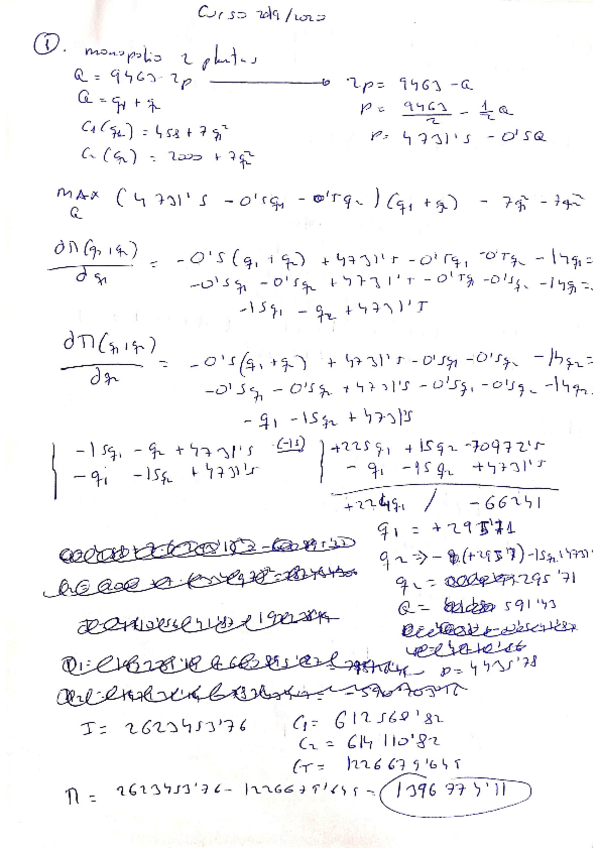 Curso 2019/2020
①. monopolio 2 plantas
Q = 9463 - 2p → 2p = 9463 - Q
Q = q1 + q2 p = 9463/2 - 1/2 Q
C1 (q1) = 458 + 7q1² p = 4731'5 - 0'5Q
C2 (q2) = 2000 + 7q2²
MAX Q (4731'5 - 0'5q1 - 0'5q2) (q1 + q2) - 7q1² - 7q2²
∂Π(q1,q2)/∂q1 = -0'5 (q1 + q2) + 4731'5 - 0'5q1 - 0'5q2 - 14q1 =
-0'5q1 - 0'5q2 + 4731'5 - 0'5q1 - 0'5q2 - 14q1 =
-15q1 - q2 + 4731'5
∂Π(q1,q2)/∂q2 = -0'5(q1+q2) + 4731'5 - 0'5q1 - 0'5q2 - 14q2 =
-0'5q1 - 0'5q2 + 4731'5 - 0'5q1 - 0'5q2 - 14q2
- q1 - 15q2 + 4731'5
-15q1 - q2 + 4731'5 (-15) +225q1 + 15q2 - 70972'5
- q1 - 15q2 + 4731'5 - q1 - 15q2 + 4731'5
+224q1 / - 66241
q1 = +295'71
q2 =
295'71
Q = 591'43
p = 4435'78
I = 2623453'76 C1 = 612568'82
C2 = 614110'82
CT = 1226679'645
Π = 2623453'76 - 1226679'645 = 1396774'11